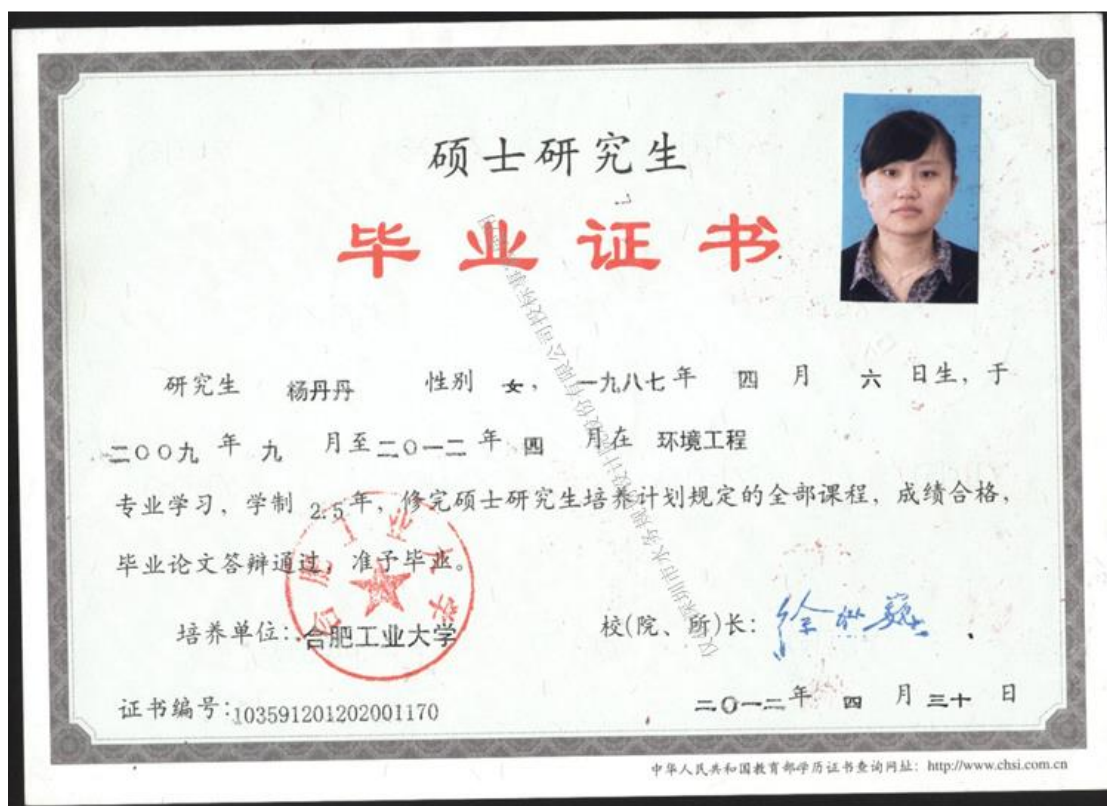 硕士研究生
毕业证书
研究生 杨丹丹 性别 女, 一九八七年 四 月 六 日生, 于
二〇〇九 年 九 月至 二〇一二 年 四 月在 环境工程
专业学习, 学制 2.5 年, 修完硕士研究生培养计划规定的全部课程, 成绩合格,
毕业论文答辩通过, 准予毕业。
合肥工业大学
培养单位: 合肥工业大学
校(院、所)长:
证书编号:103591201202001170
二〇一二 年 四 月 三十 日
中华人民共和国教育部学历证书查询网址: http://www.chsi.com.cn